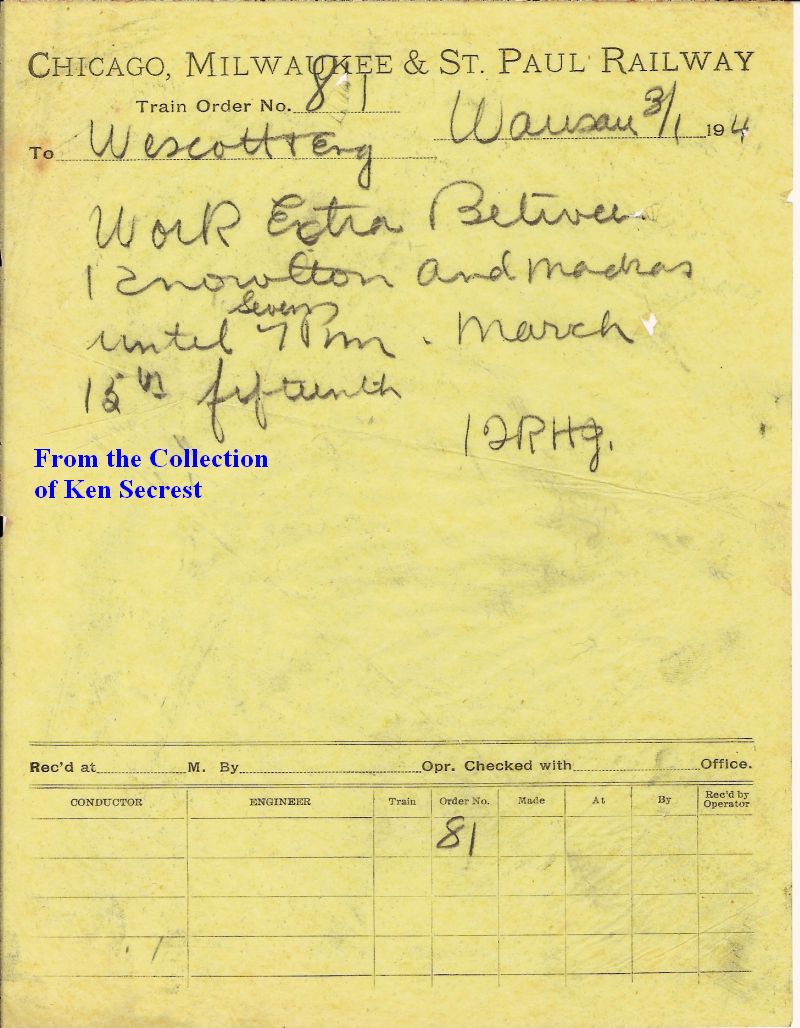 CHICAGO, MILWAUKEE & ST. PAUL RAILWAY
Train Order No. 81
Wausau 3/1 194
To Wescott & Eng
Work Extra Between
Knowlton and Madras
Seven
until 7 Pm. March
15th fifteenth
From the Collection
of Ken Secrest
Rec'd at M. By Opr. Checked with Office.
CONDUCTOR ENGINEER Train Order No. Made At By Rec'd by Operator
81